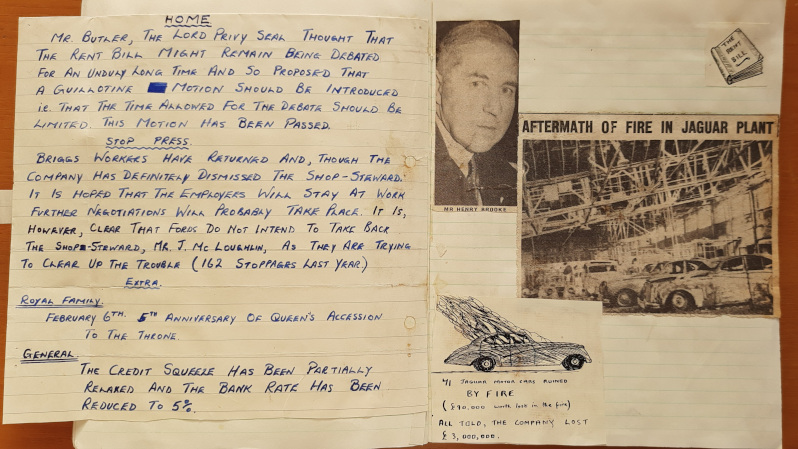 HOME
MR. BUTLER, THE LORD PRIVY SEAL THOUGHT THAT
THE RENT BILL MIGHT REMAIN BEING DEBATED
FOR AN UNDULY LONG TIME AND SO PROPOSED THAT
A GUILLOTINE MOTION SHOULD BE INTRODUCED
i.e. THAT THE TIME ALLOWED FOR THE DEBATE SHOULD BE
LIMITED. THIS MOTION HAS BEEN PASSED.
STOP PRESS.
BRIGGS WORKERS HAVE RETURNED AND, THOUGH THE
COMPANY HAS DEFINITELY DISMISSED THE SHOP-STEWARD.
IT IS HOPED THAT THE EMPLOYERS WILL STAY AT WORK
FURTHER NEGOTIATIONS WILL PROBABLY TAKE PLACE. IT IS,
HOWEVER, CLEAR THAT FORDS DO NOT INTEND TO TAKE BACK
THE SHOP-STEWARD, MR. J. MC LOUGHLIN, AS THEY ARE TRYING
TO CLEAR UP THE TROUBLE (162 STOPPAGES LAST YEAR.)
EXTRA.
ROYAL FAMILY.
FEBRUARY 6TH. 5TH ANNIVERSARY OF QUEEN'S ACCESSION
TO THE THRONE.
GENERAL.
THE CREDIT SQUEEZE HAS BEEN PARTIALLY
RELAXED AND THE BANK RATE HAS BEEN
REDUCED TO 5%.
MR HENRY BROOKE
THE
RENT
BILL
AFTERMATH OF FIRE IN JAGUAR PLANT
JAGUAR MOTOR CARS RUINED
BY FIRE
(£90,000 worth lost in the fire)
ALL TOLD, THE COMPANY LOST
£ 3,000,000.